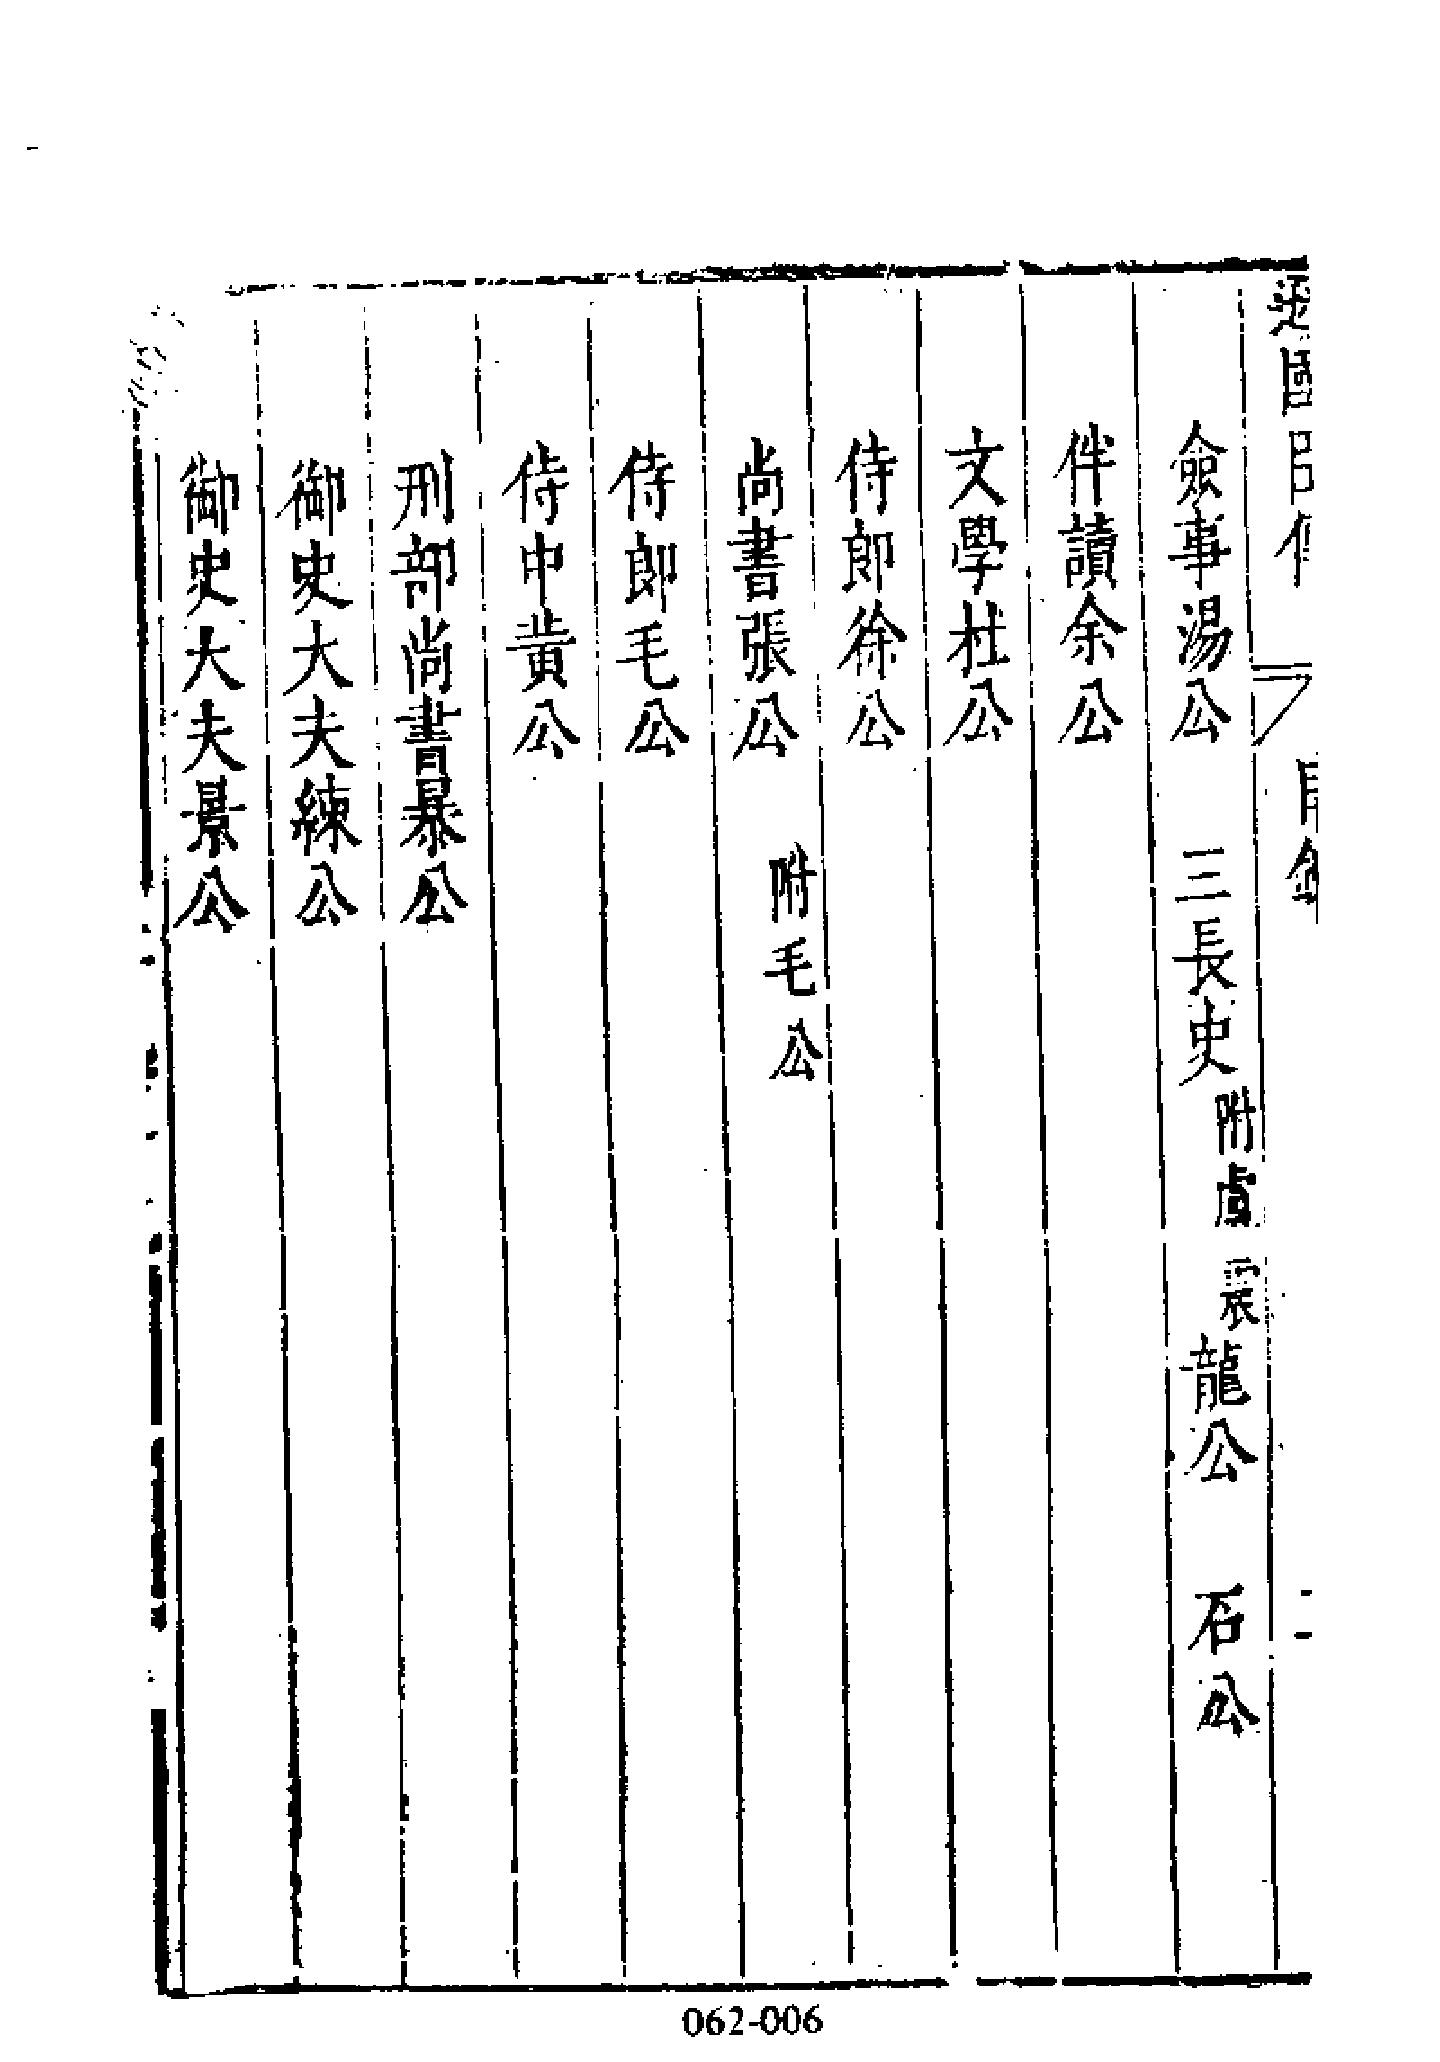 僉事湯公 三長史 附盧 震 龍公 石公
伴讀余公
文學杜公
侍郎徐公
尚書張公 附毛公
侍郎毛公
侍中黃公
刑部尚書暴公
御史大夫練公
御史大夫景公
062-006